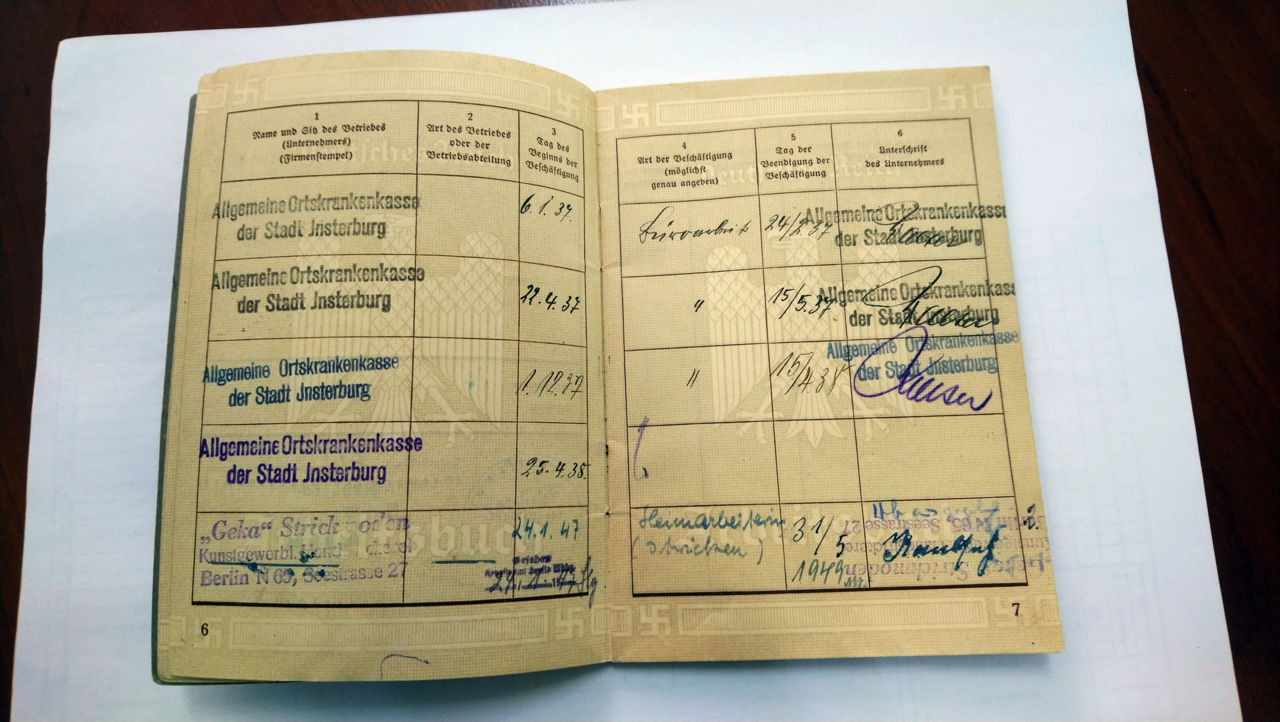 1
Name und Sitz des Betriebes
(Unternehmers)
(Firmenstempel)
2
Art des Betriebes
oder der
Betriebsabteilung
3
Tag des
Beginns der
Beschäftigung
Allgemeine Ortskrankenkasse
der Stadt Jnsterburg
6.1.37.
Allgemeine Ortskrankenkasse
der Stadt Jnsterburg
22.4.37
Allgemeine Ortskrankenkasse
der Stadt Jnsterburg
1.12.37
Allgemeine Ortskrankenkasse
der Stadt Jnsterburg
25.4.38.
„Geka“ Strick
Kunstgewerbl.
Berlin N 65, Seestrasse 27
24.1.47
6
4
Art der Beschäftigung
(möglichst
genau angeben)
5
Tag der
Beendigung der
Beschäftigung
6
Unterschrift
des Unternehmers
Büroarbeit
24/2.37
Allgemeine Ortskrankenkasse
der Stadt Jnsterburg
"
15/5.37.
Allgemeine Ortskrankenkasse
der Stadt Jnsterburg
"
15/4.38
Allgemeine Ortskrankenkasse
der Stadt Jnsterburg
Heimarbeiterin
(stricken)
31/5
1949
Strickmoden
Seestrasse 27
7